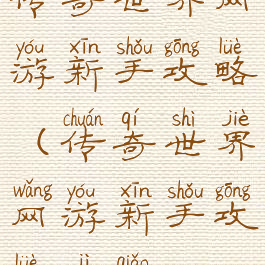 传奇世界网
yóu xīn shǒu gōng lüè
游新手攻略
chuán qí shì jiè
（传奇世界
wǎng yóu xīn shǒu gōng
网游新手攻
lüè jì qiǎo